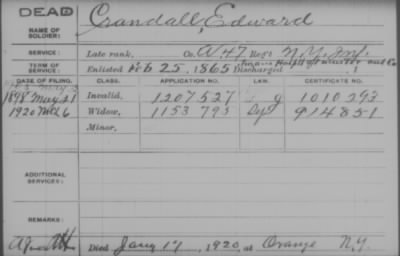 DEAD
Crandall, Edward
NAME OF SOLDIER:
SERVICE: Late rank, Co. A 47 Reg't N.Y. Inf.
TERM OF SERVICE: Enlisted Feb 25, 1865 Discharged , 1
DATE OF FILING. CLASS. APPLICATION NO. LAW. CERTIFICATE NO.
1898 May 21 Invalid, 1207527 g 1010293
1920 Mch 6 Widow, 1153793 914851
Minor,
ADDITIONAL SERVICES:
REMARKS:
Died Jany 17, 1920, at Orange N.Y.